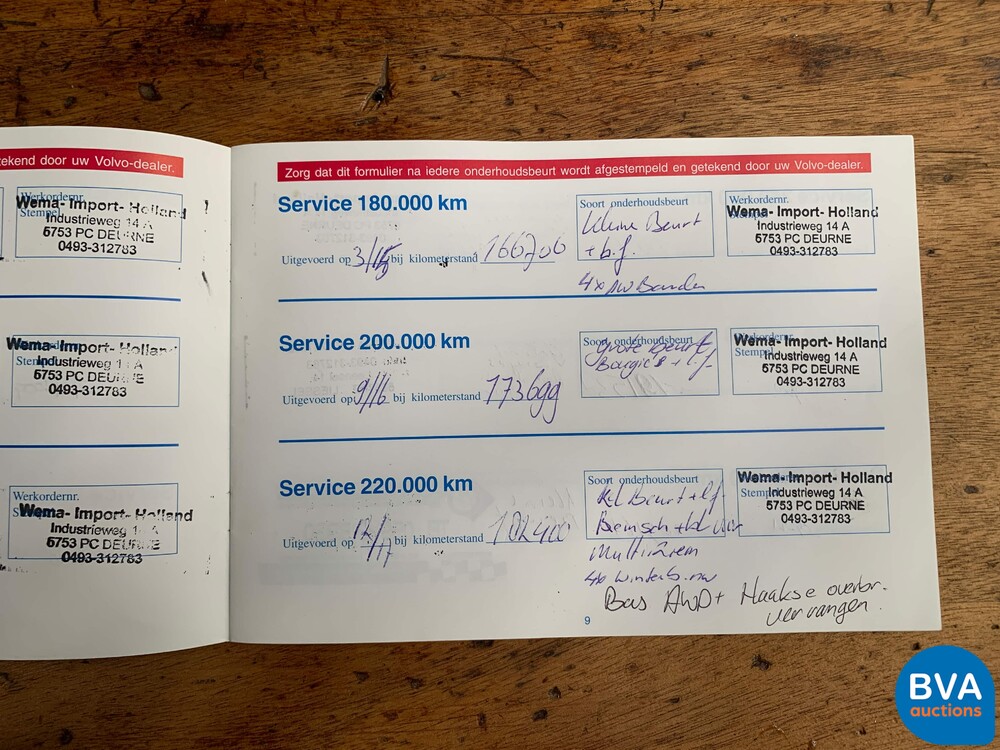 tekend door uw Volvo-dealer.
Werkordernr.
Stempel
Wema-Import-Holland
Industrieweg 14 A
5753 PC DEURNE
0493-312783
Wema-Import-Holland
Industrieweg 14 A
5753 PC DEURNE
0493-312783
Werkordernr.
Wema-Import-Holland
Industrieweg
5753 PC DEURNE
0493-312783
Zorg dat dit formulier na iedere onderhoudsbeurt wordt afgestempeld en getekend door uw Volvo-dealer.
Service 180.000 km
Uitgevoerd op 3/ bij kilometerstand 166706
Soort onderhoudsbeurt
Kleine Beurt
+ b.f.
4x Banden
Wema-Import-Holland
Industrieweg 14 A
5753 PC DEURNE
0493-312783
Service 200.000 km
Uitgevoerd op 9/16 bij kilometerstand 173699
Soort onderhoudsbeurt
grote beurt
Bougie's
Werkordernr.
Stempel
Wema-Import-Holland
Industrieweg 14 A
5753 PC DEURNE
0493-312783
Service 220.000 km
Uitgevoerd op 12/17 bij kilometerstand
Soort onderhoudsbeurt
Kl Beurt
Multiriem
Stempel
Wema-Import-Holland
Industrieweg 14 A
5753 PC DEURNE
0493-312783
Bas AWD + Haakse overbr.
vervangen.
9
BVA
auctions